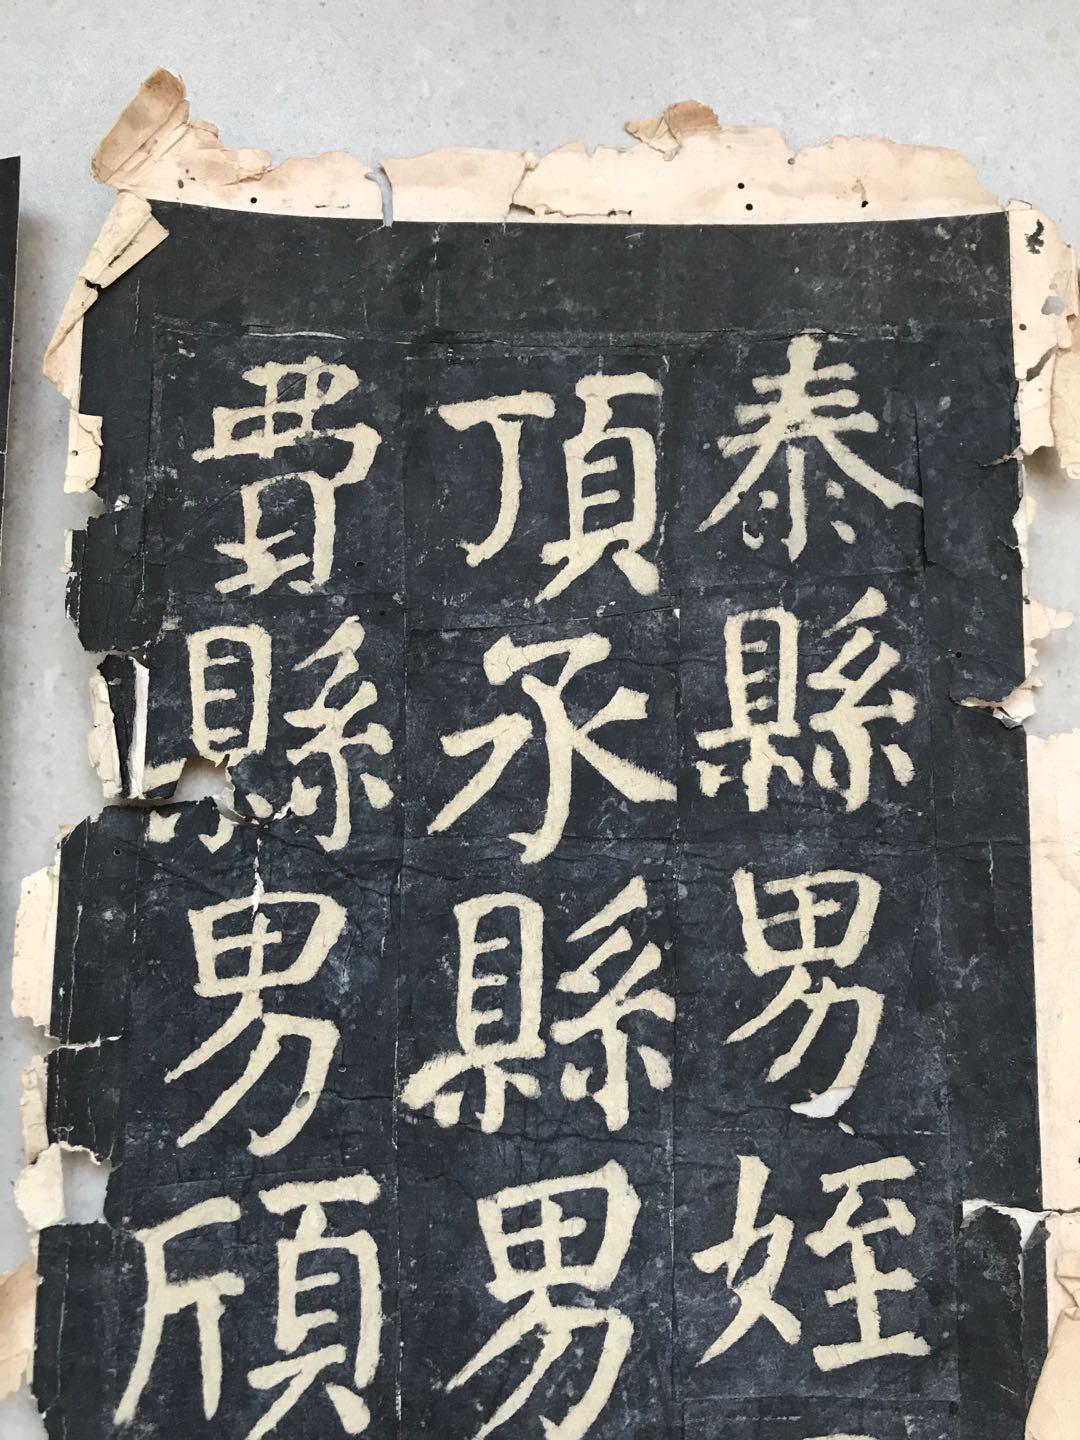 泰縣男姪
頂氶縣男
費縣男頎